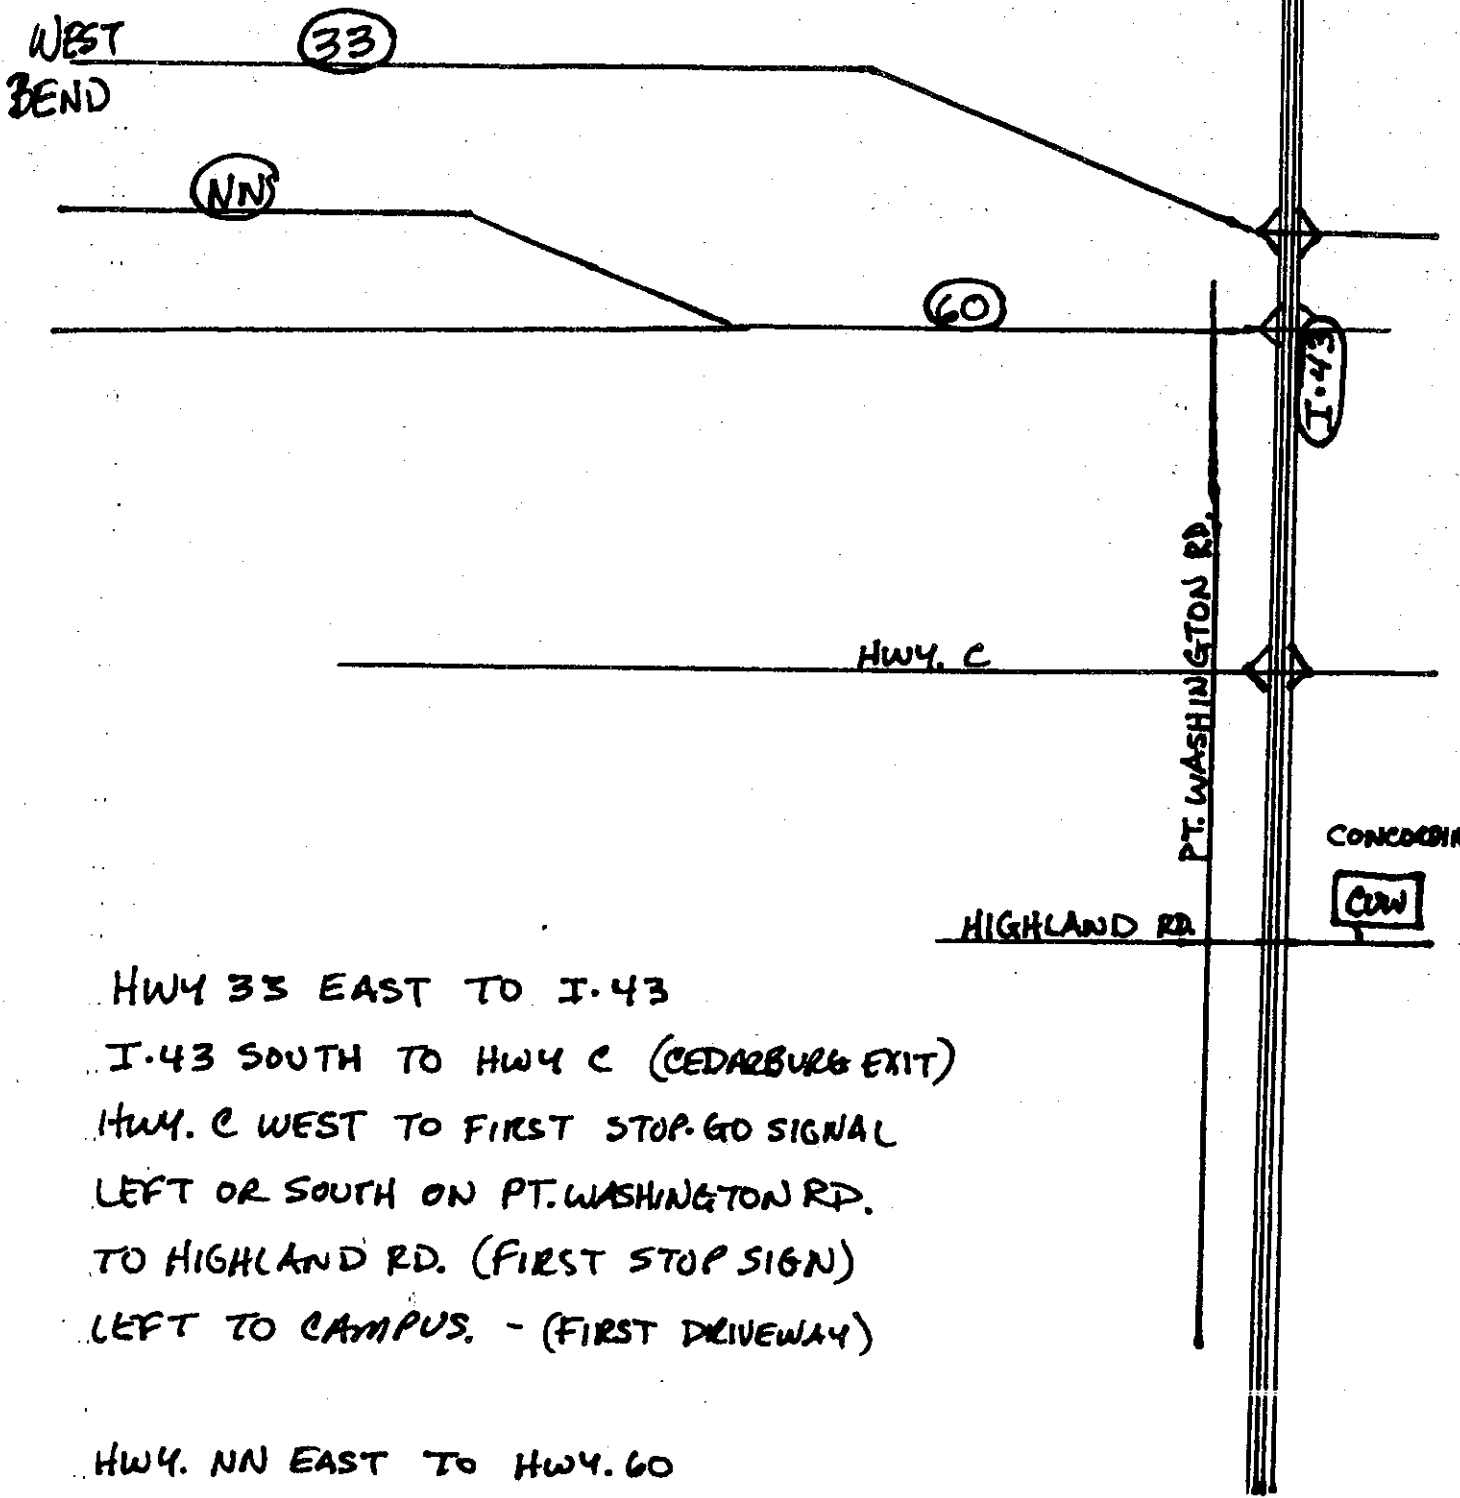 WEST
BEND
33
NN
60
I.43
PT. WASHINGTON RD.
HWY. C
CONCORDIA
CUW
HIGHLAND RD.
HWY 33 EAST TO I.43
I.43 SOUTH TO HWY C (CEDARBURG EXIT)
HWY. C WEST TO FIRST STOP-GO SIGNAL
LEFT OR SOUTH ON PT. WASHINGTON RD.
TO HIGHLAND RD. (FIRST STOP SIGN)
LEFT TO CAMPUS. - (FIRST DRIVEWAY)
HWY. NN EAST TO HWY. 60